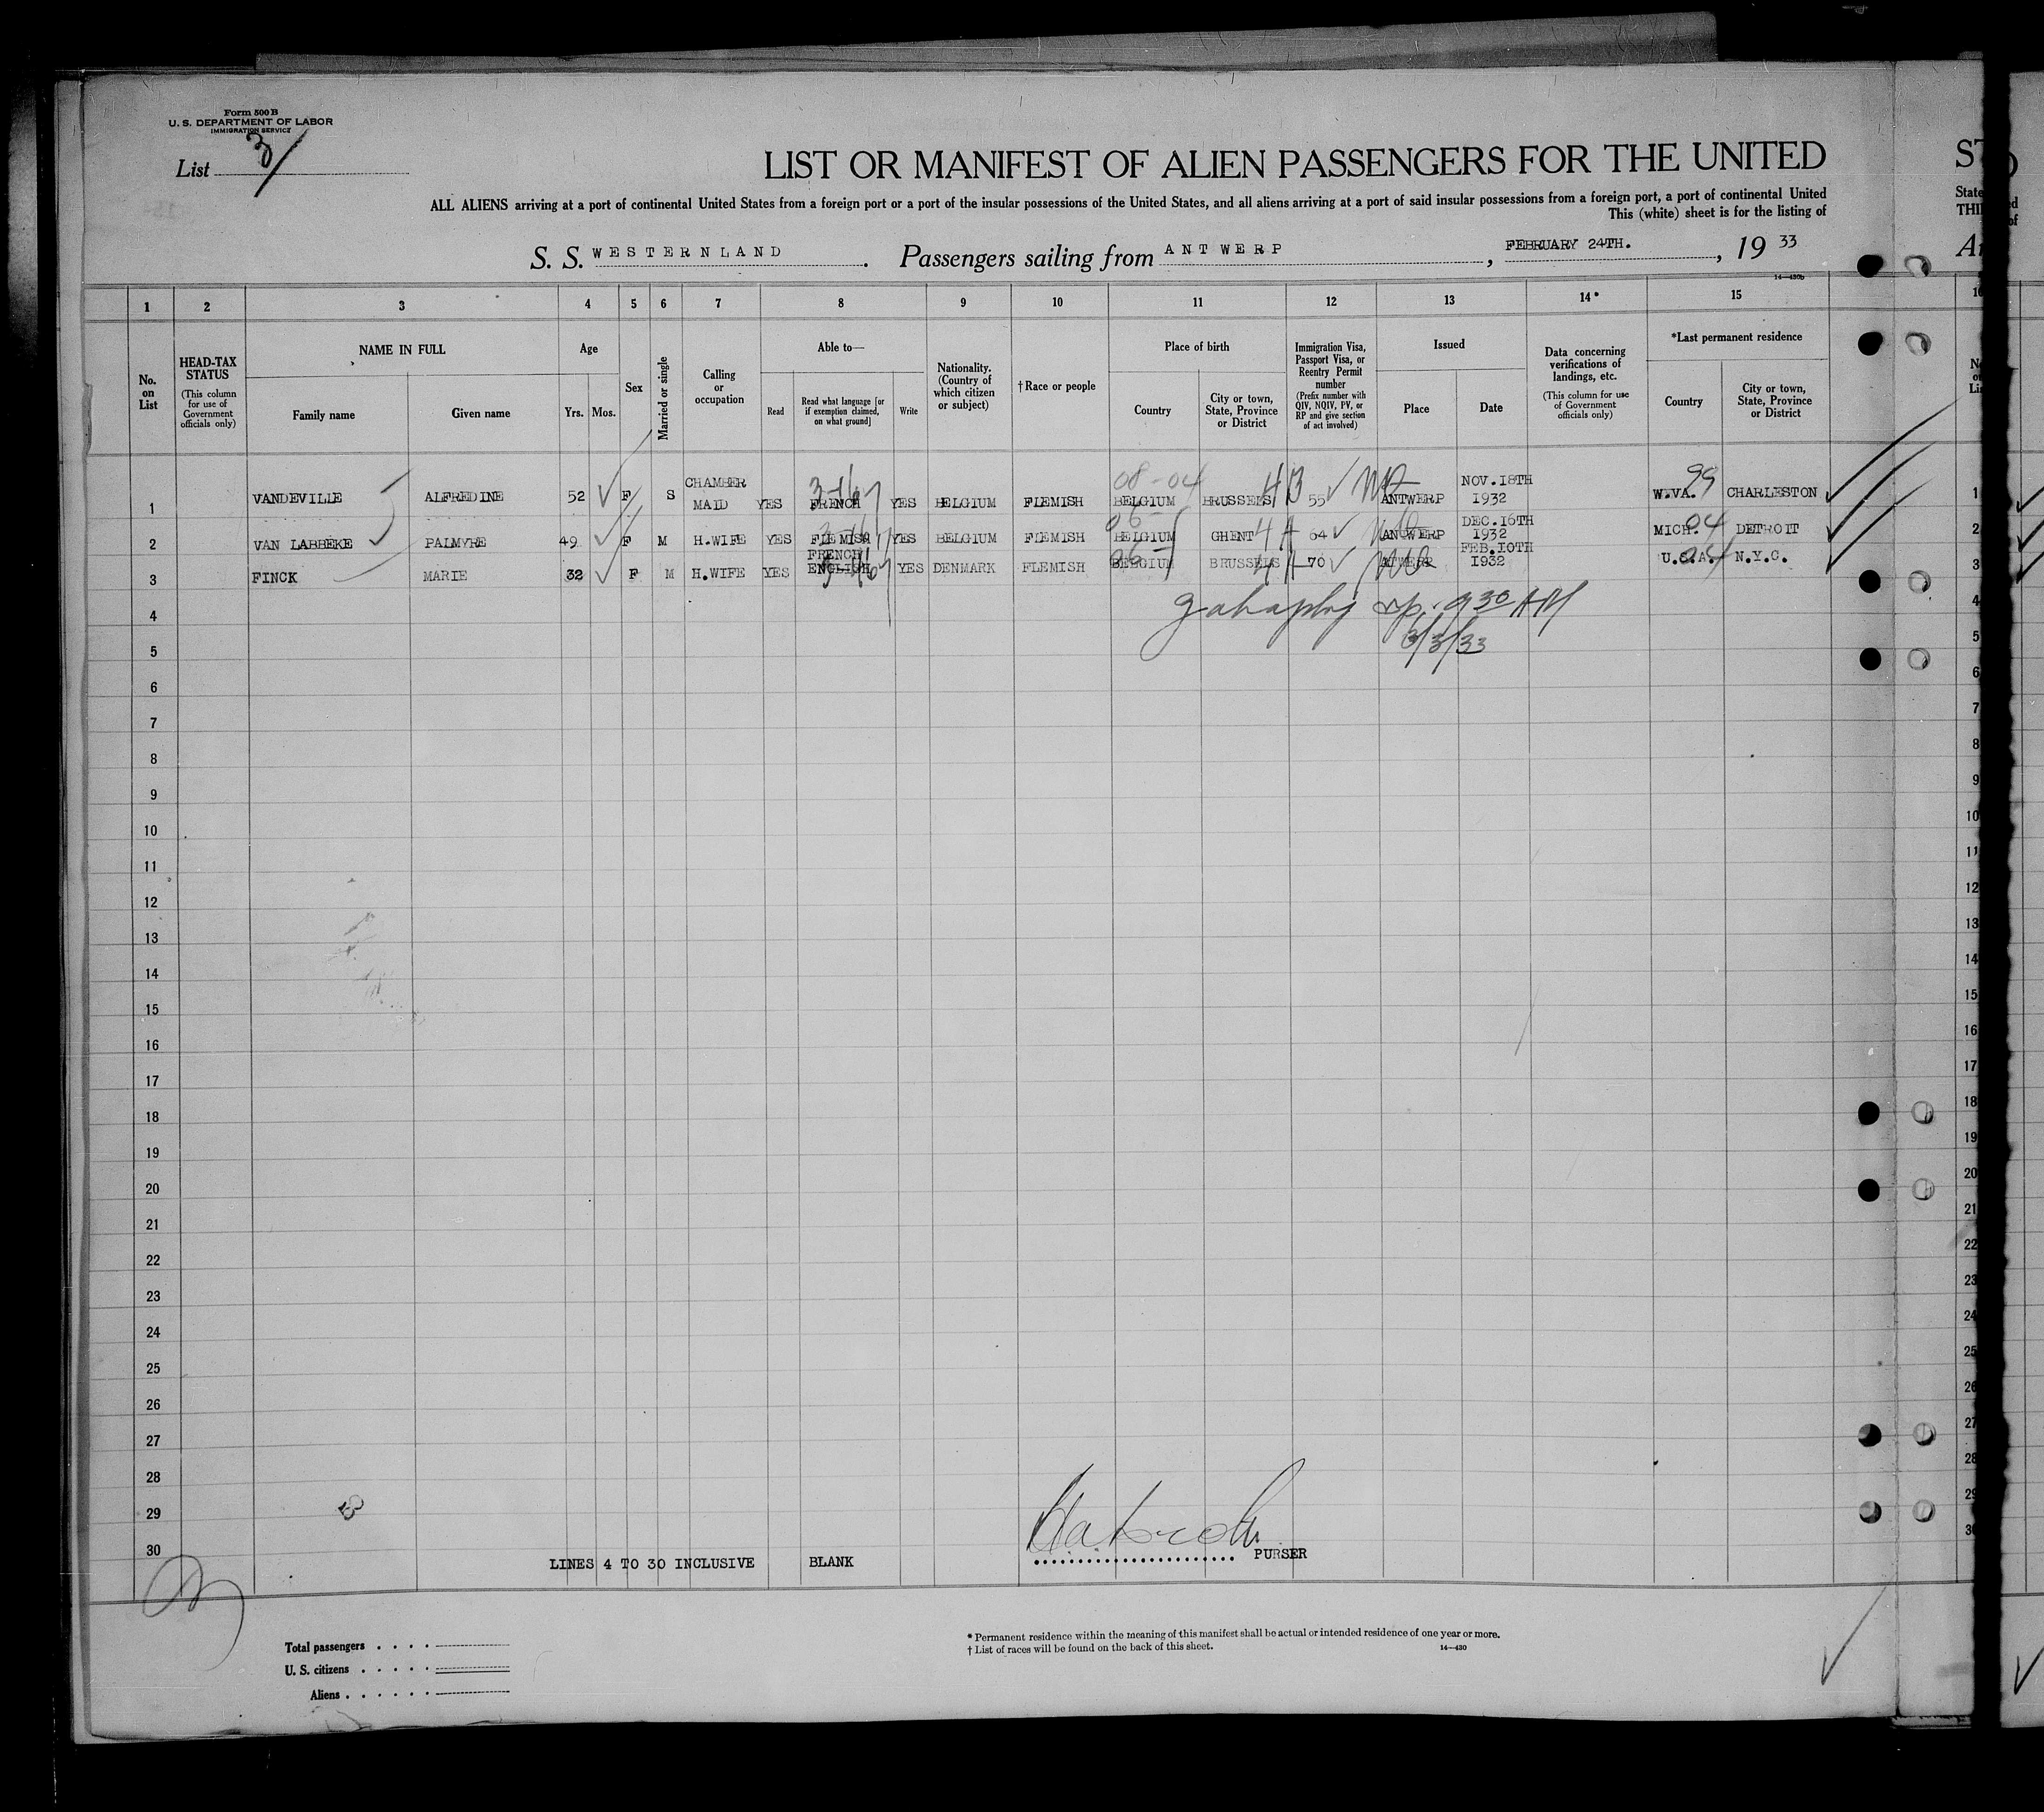 Form 500 B
U. S. DEPARTMENT OF LABOR
IMMIGRATION SERVICE
List 3
LIST OR MANIFEST OF ALIEN PASSENGERS FOR THE UNITED
ALL ALIENS arriving at a port of continental United States from a foreign port or a port of the insular possessions of the United States, and all aliens arriving at a port of said insular possessions from a foreign port, a port of continental United
This (white) sheet is for the listing of
S. S. WESTERNLAND. Passengers sailing from ANTWERP, FEBRUARY 24TH., 19 33
1 2 3 4 5 6 7 8 9 10 11 12 13 14* 15
No. on List
HEAD-TAX STATUS (This column for use of Government officials only)
NAME IN FULL Family name Given name
Age Yrs. Mos.
Sex
Married or single
Calling or occupation
Able to— Read Read what language [or if exemption claimed, on what ground] Write
Nationality. (Country of which citizen or subject)
† Race or people
Place of birth Country City or town, State, Province or District
Immigration Visa, Passport Visa, or Reentry Permit number (Prefix number with QIV, NQIV, PV, or RP and give section of act involved)
Issued Place Date
Data concerning verifications of landings, etc. (This column for use of Government officials only)
*Last permanent residence Country City or town, State, Province or District
1 VANDEVILLE ALFREDINE 52 F S CHAMBER MAID YES FRENCH YES BELGIUM FLEMISH 08-04 BELGIUM BRUSSELS 55 ANTWERP NOV.18TH 1932 W.VA. 99 CHARLESTON
2 VAN LABBEKE PALMYRE 49 F M H.WIFE YES FLEMISH YES BELGIUM FLEMISH BELGIUM GHENT 64 ANTWERP DEC.16TH 1932 MICH. 04 DETROIT
3 FINCK MARIE 32 F M H.WIFE YES FRENCH ENGLISH YES DENMARK FLEMISH BELGIUM BRUSSELS 70 FEB.10TH 1932 U.S.A. N.Y.C.
4 9 30 AM
5 3/3/33
6
7
8
9
10
11
12
13
14
15
16
17
18
19
20
21
22
23
24
25
26
27
28
29
30
LINES 4 TO 30 INCLUSIVE BLANK
PURSER
Total passengers
U. S. citizens
Aliens
* Permanent residence within the meaning of this manifest shall be actual or intended residence of one year or more.
† List of races will be found on the back of this sheet. 14—430